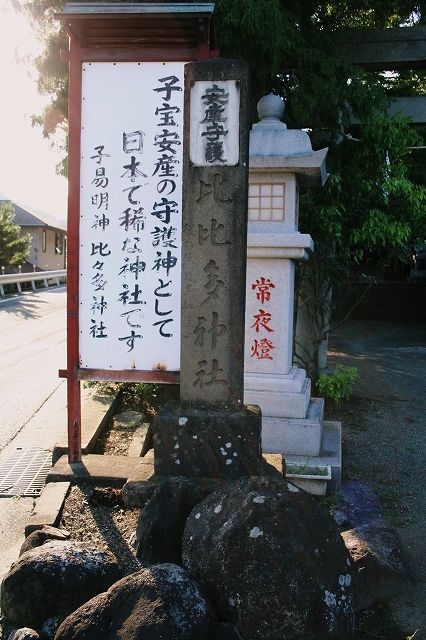 子宝安産の守護神として
日本で稀な神社です
子易明神 比々多神社
安産守護
比比多神社
常夜燈